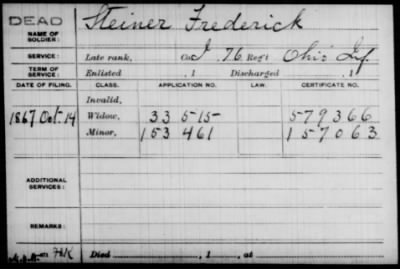 DEAD
NAME OF SOLDIER: Steiner Frederick
SERVICE: Late rank, Co. I, 76 Reg't Ohio Inf.
TERM OF SERVICE: Enlisted , 1 Discharged , 1
DATE OF FILING. CLASS. APPLICATION NO. LAW. CERTIFICATE NO.
Invalid,
1867 Oct. 14 Widow, 33 515 579366
Minor, 153 461 157063
ADDITIONAL SERVICES:
REMARKS:
Died , 1 , at